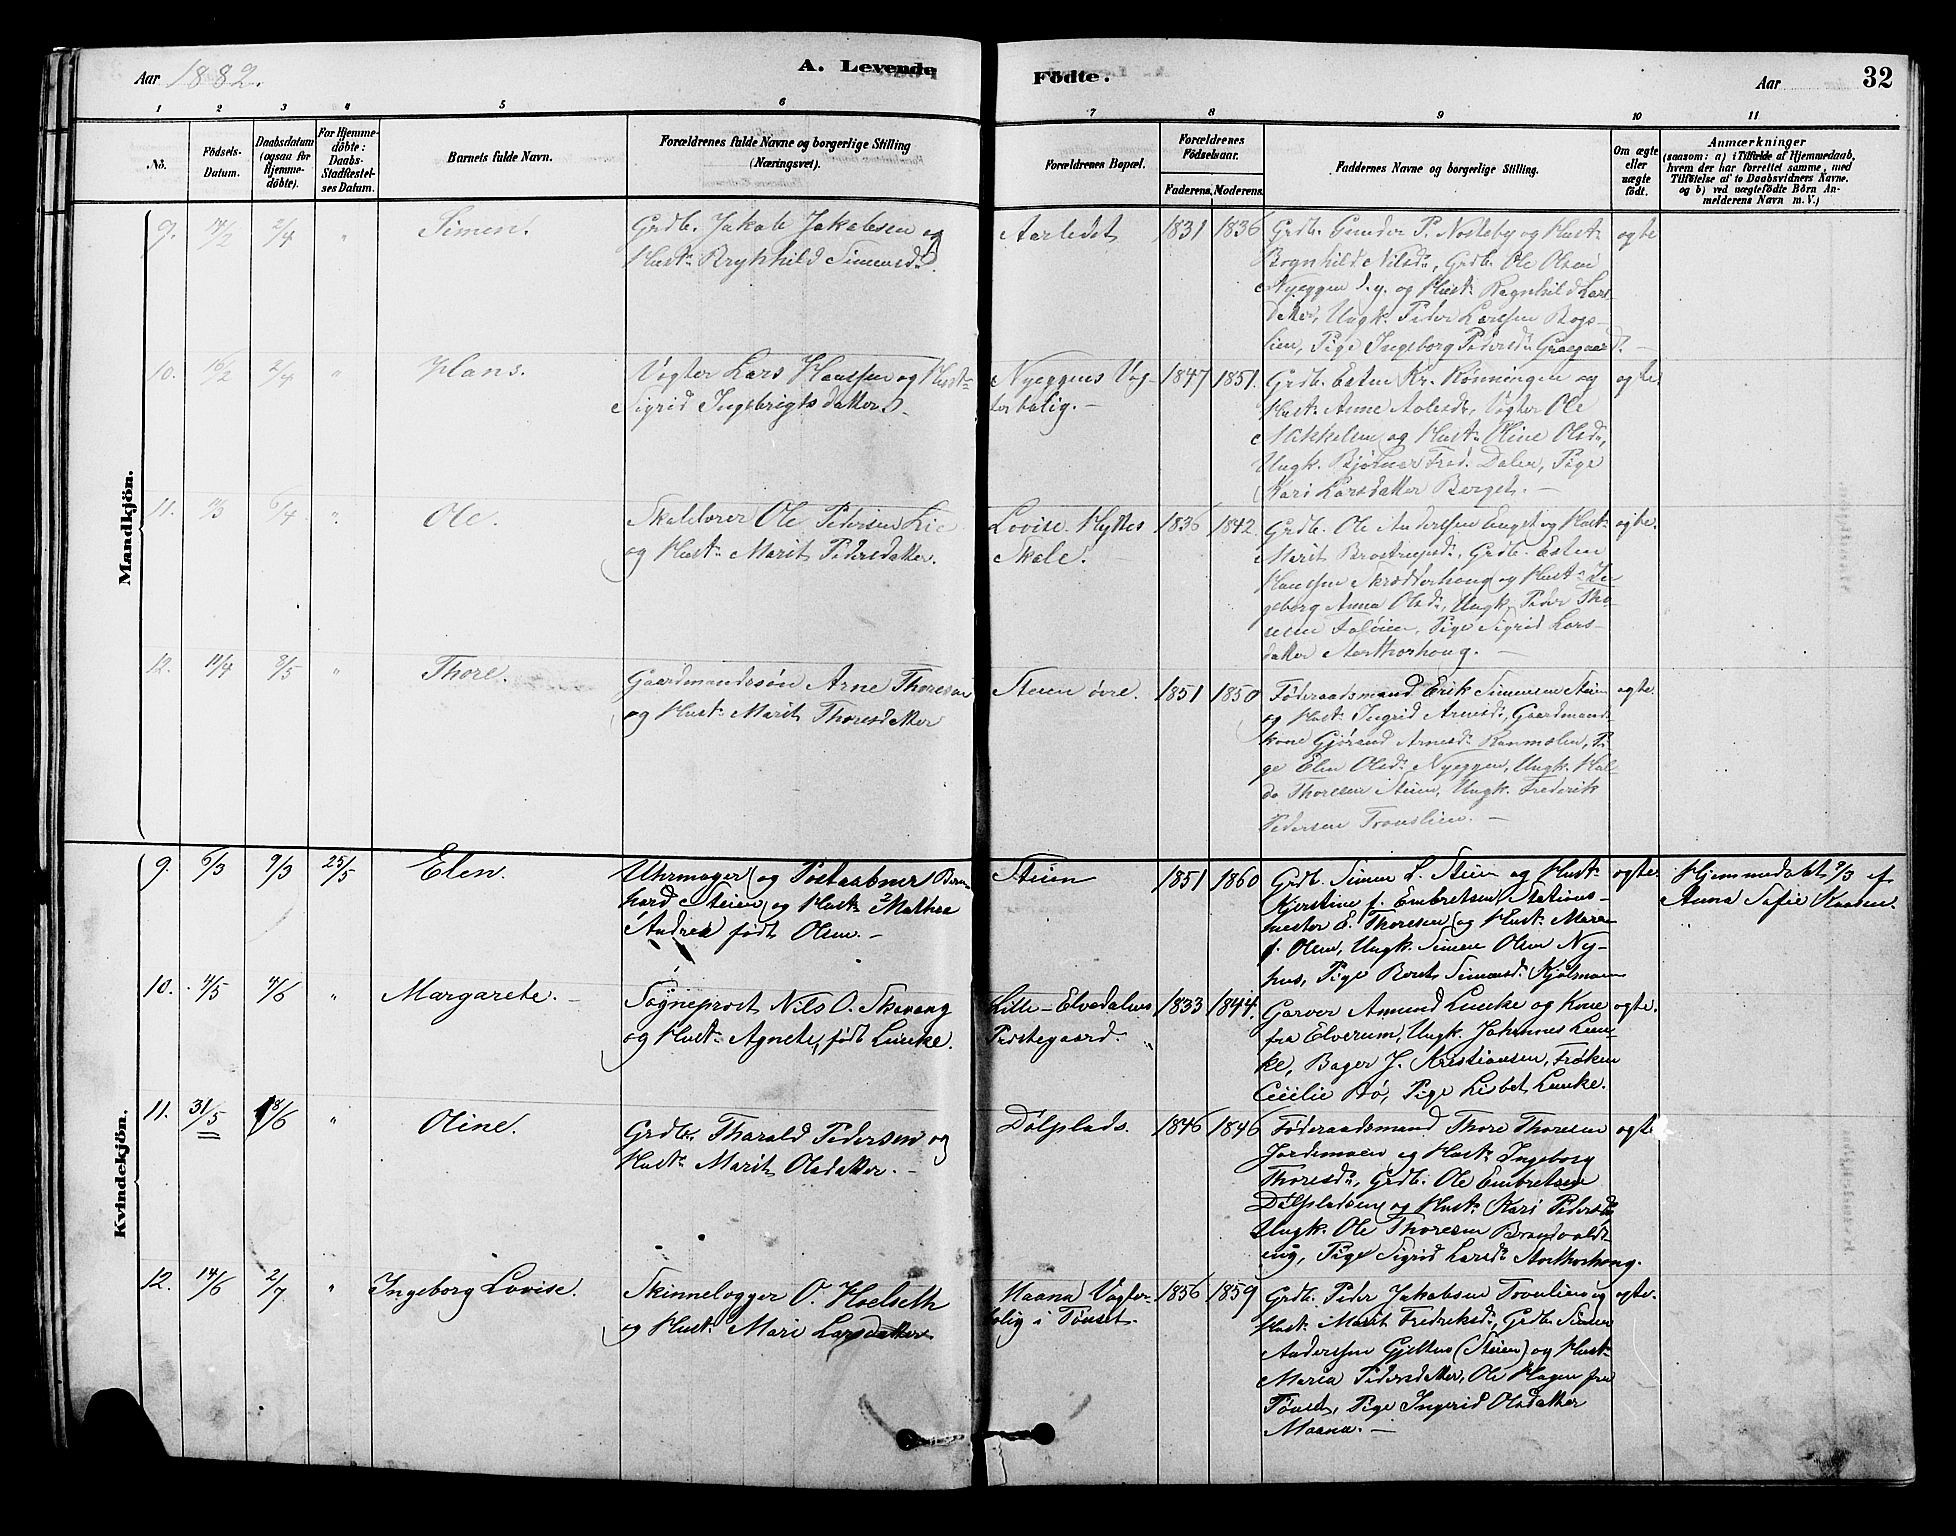 Aar 1882.
A. Levende Födte.
Aar
32
1 2 3 4 5 6 7 8 9 10 11
No.
Födsels-Datum.
Daabsdatum (ogsaa for Hjemmedöbte).
For Hjemmedöbte: Daabs-Stadfæstelses Datum.
Barnets fulde Navn.
Forældrenes fulde Navne og borgerlige Stilling (Næringsvei).
Forældrenes Bopæl.
Forældrenes Födselsaar.
Faderens. Moderens.
Faddernes Navne og borgerlige Stilling.
Om ægte eller uægte födt.
Anmærkninger
(saasom: a) i Tilfælde af Hjemmedaab, hvem der har forrettet samme, med Tilföielse af to Daabsvidners Navne, og b) ved uægtefödte Börn Anmelderens Navn m. V.)
Mandkjön.
9. 14/2 2/4 " Simen.
Grdb. Jakob Jakobsen og
Hust. Brynhild Simensd.
Aarledet 1831 1836
Grdb. Gunder P. Nosteby og Hust.
Ragnhild Nilsd., Grdb. Ole Olsen
Nyeggen d. y. og Hust. Ragnhild Lars-
datter, Ungk. Peder Larssen
Pige Ingeborg Pedersd.
ægte
10. 16/2 2/4 " Hans.
Vogter Lars Hanssen og Hust.
Sigrid Ingebrigtsdatter.
Nyeggens Vog-
terbolig. –
1847 1851.
Grdb. Esten Kr. Rønningen og
Hust. Anne Aolesd., Vogter Ole
Mikkelsen og Hust. Oline Olsd.,
Ungk. Bjørner Fred. Dalen, Pige
Kari Larsdatter Berget. –
ægte.
11. 6/4 " Ole.
Skolelærer Ole Pedersen Lie
og Hust. Marit Pedersdatter.
Lovise Hyttes
Skole.
1836 1842.
Grdb. Ole Anderssen Enget og Hust.
Marit Brostrupsd., Grdb. Esten
Hanssen og Hust. In-
geborg Anna Olsd., Ungk. Peder Tho-
resen Pige Sigrid Lars-
datter Aasthorhoug. –
ægte.
12. 11/4 8/5 " Thore.
Gaardmandssøn Arne Thoresen
og Hust. Marit Thoresdatter
Steien øvre. 1851 1850
Føderaadsmand Erik Simensen Steien
og Hust. Ingrid Arnesd., Gaardmands-
kone Gjørand Arnesd. Ranmælen, Pi-
ge Elen Olsd. Nyeggen, Ungk. Hal-
do Thoresen Steien, Ungk. Frederik
Pedersen Tronslien. –
ægte.
Kvindekjön.
9. 6/3 9/3 25/5 Elen.
Uhrmager og Postaabner Bern-
hard Steien og Hust. Mathea
Andrea født Olsen. –
Steien 1851 1860
Grdb. Simen L. Steien og Hust.
Kjerstine f. Embretsen, Stations-
mester E. Thoresen og Hust. Maren
f. Olsen, Ungk. Simen Olsen Ny-
hus, Pige Beret Simensd. Kjølsmoen
ægte.
Hjemmedøbt 9/3 af
Anna Sofie Kaasen.
10. 4/5 4/6 " Margarete. –
Sogneprest Nils O. Skavang
og Hust. Agnete, født Lunke.
Lille-Elvedalens
Prestegaard.
1833 1844.
Garver Amund Lunke og Kone
fra Elverum, Ungk. Johannes Lun-
ke, Bager J. Kristiansen, Frøken
Cecilie Bø, Pige Lisbet Lunke.
ægte.
11. 31/5 18/6 " Oline.
Grdb. Tharald Pedersen og
Hust. Marit Olsdatter. –
Dølplads. 1846 1846
Føderaadsmand Thore Thoresen
Jordsmoen og Hust. Ingeborg
Thoresd., Grdb. Ole Embretsen
Dølpladsen og Hust. Kari Pedersd.,
Ungk. Ole Thoresen Brandvold-
eng, Pige Sigrid Larsd. Aasthorhoug.
ægte
12. 14/6 2/7 " Ingeborg Lovise.
Skinnelægger O. Hoelseth
og Hust. Mari Larsdatter
Maana Vogter-
bolig i Tønset.
1856 1859
Grdb. Peder Jakobsen Tronslien og
Hust. Marit Fredriksd., Grdb. Simen
Anderssen Gjelten (Steien) og Hust.
Maria Pedersdatter, Ole Hagen fra
Tønset, Pige Ingerid Olsdatter
Maana. –
ægte.